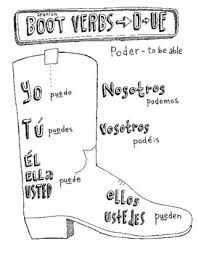 Spanish
BOOT VERBS → O → UE
Poder - to be able
Yo puedo
Nosotros
podemos
TÚ puedes
Vosotros
podéis
ÉL
ella puede
USTED
ellos
ustedes pueden